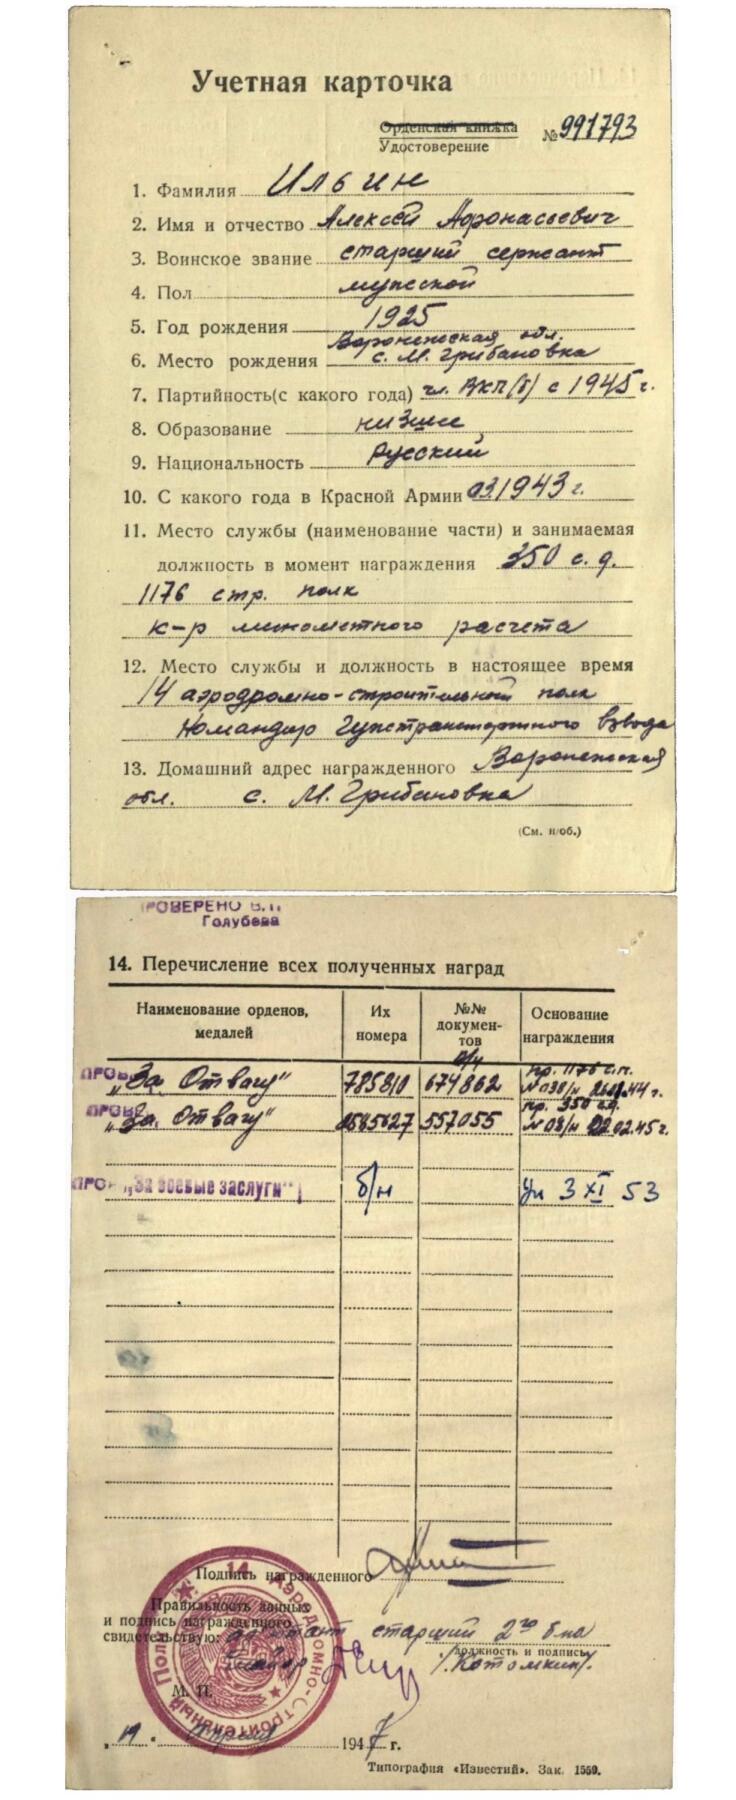 Учетная карточка
Орденская книжка
Удостоверение № 991793
1. Фамилия Ильин
2. Имя и отчество Алексей Афонасьевич
3. Воинское звание старший сержант
4. Пол мужской
5. Год рождения 1925
Воронежская обл.
6. Место рождения с. М. Грибановка
7. Партийность(с какого года) чл. ВКП(б) с 1945 г.
8. Образование низшее
9. Национальность Русский
10. С какого года в Красной Армии 03.1943 г.
11. Место службы (наименование части) и занимаемая
должность в момент награждения 350 с. д.
1176 стр. полк
к-р минометного расчета
12. Место службы и должность в настоящее время
14 аэродромно-строительный полк
Командир Гужтранспортного взвода
13. Домашний адрес награжденного Воронежская
обл. с. М. Грибановка
(См. н/об.)
ПРОВЕРЕНО В.
Голубева
14. Перечисление всех полученных наград
Наименование орденов, медалей Их номера №№ документов Основание награждения
б/н пр. 1176 с.п.
ПРОВ „За Отвагу" 785810 674862 № 038/н .44 г.
пр. 350 с.д.
ПРОВ „За Отвагу" 557055 № 08/н 02.02.45 г.
ПРОВ „За боевые заслуги" б/н Ук 3 XI 53
Подпись награжденного
Правильность данных
и подпись награжденного
свидетельствую: адъютант старший 2го б-на
должность и подпись
/Котомкин/.
М. П.
14 Аэродромно-Строительный Полк
„19" Апреля 1947 г.
Типография «Известий». Зак. 1550.